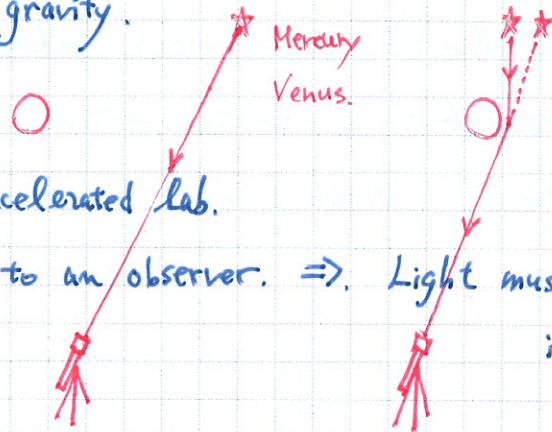 gravity.
Mercury
Venus.
celerated lab.
to an observer. ⇒. Light mus
i